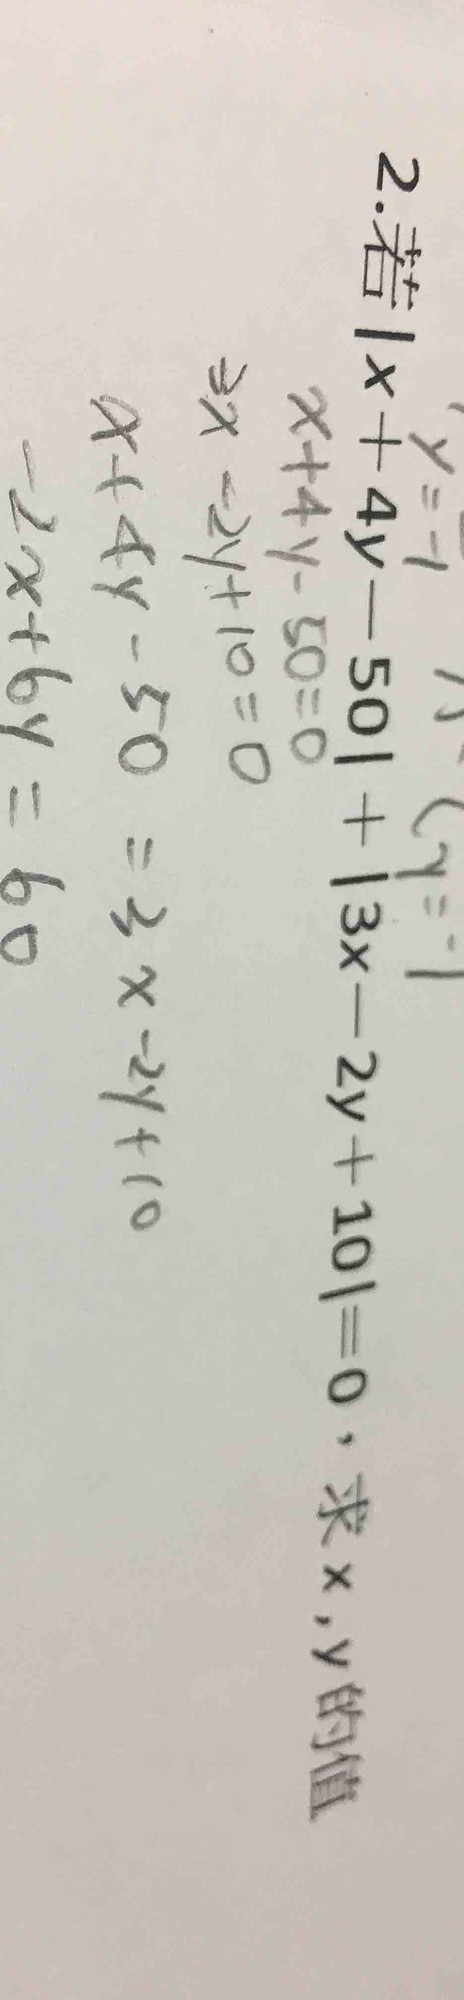 y=-1 (y=-1
2.若|x+4y-50|+|3x-2y+10|=0,求x,y的值
x+4y-50=0
3x-2y+10=0
x+4y-50=3x-2y+10
-2x+6y=60